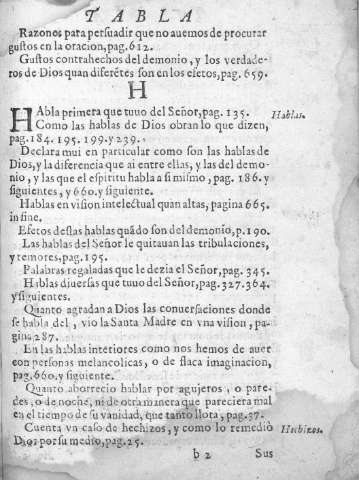 TABLA
Razones para persuadir que no auemos de procurar
gustos en la oracion, pag. 612.
Gustos contrahechos del demonio, y los verdade-
ros de Dios quan diferẽtes son en los efetos, pag. 659.
H
HAbla primera que tuuo del Señor, pag. 135. Hablas.
Como las hablas de Dios obran lo que dizen,
pag. 184. 195. 199. y 239.
Declara mui en particular como son las hablas de
Dios, y la diferencia que ai entre ellas, y las del demo-
nio, y las que el espiritu habla a si mismo, pag. 186. y
siguientes, y 660. y siguiente.
Hablas en vision intelectual quan altas, pagina 665.
in fine.
Efetos destas hablas quãdo son del demonio, p. 190.
Las hablas del Señor le quitauan las tribulaciones,
y temores, pag. 195.
Palabras regaladas que le dezia el Señor, pag. 345.
Hablas diuersas que tuuo del Señor, pag. 327. 364.
y siguientes.
Quanto agradan a Dios las conuersaciones donde
se habla del, vio la Santa Madre en vna vision, pa-
gina 287.
En las hablas interiores como nos hemos de auer
con personas melancolicas, o de flaca imaginacion,
pag. 660. y siguiente.
Quanto aborrecio hablar por agujeros, o pare-
des, o de noche, ni de otra manera que pareciera mal
en el tiempo de su vanidad, que tanto llora, pag. 37.
Cuenta vn caso de hechizos, y como lo remediò Hechizos.
Dios por su medio, pag. 25.
b 2 Sus